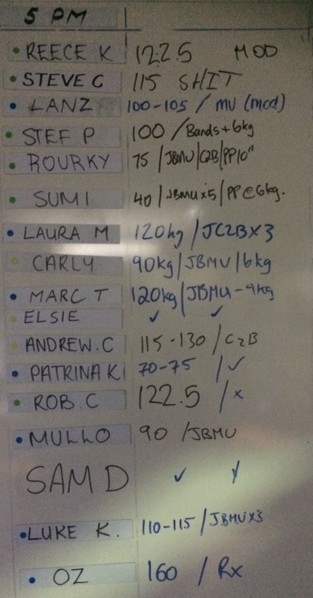 5 PM
REECE K 122.5 MOD
STEVE C 115 SHIT
LANZ 100-105 / MU (mod)
STEF P 100 / Bands + 6kg
ROURKY 75 / JBMU / C2B / PP10"
SUMI 40 / JBMUx5 / PP @ 6kg.
LAURA M 120kg / JC2Bx3
CARLY 90kg / JBMU / 6kg
MARC T 120kg / JBMU - 9kg
ELSIE ✓ ✓
ANDREW.C 115-130 / C2B
PATRINA K 70-75 / ✓
ROB.C 122.5 / x
MULLO 90 / JBMU
SAM D ✓
LUKE K. 110-115 / JBMUx3
OZ 160 / Rx